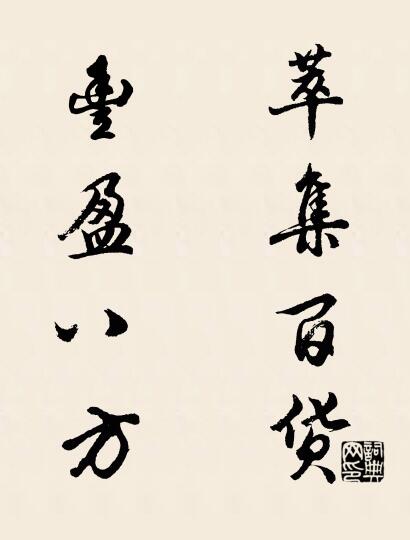 萃集百货
豐盈八方
詞典网印